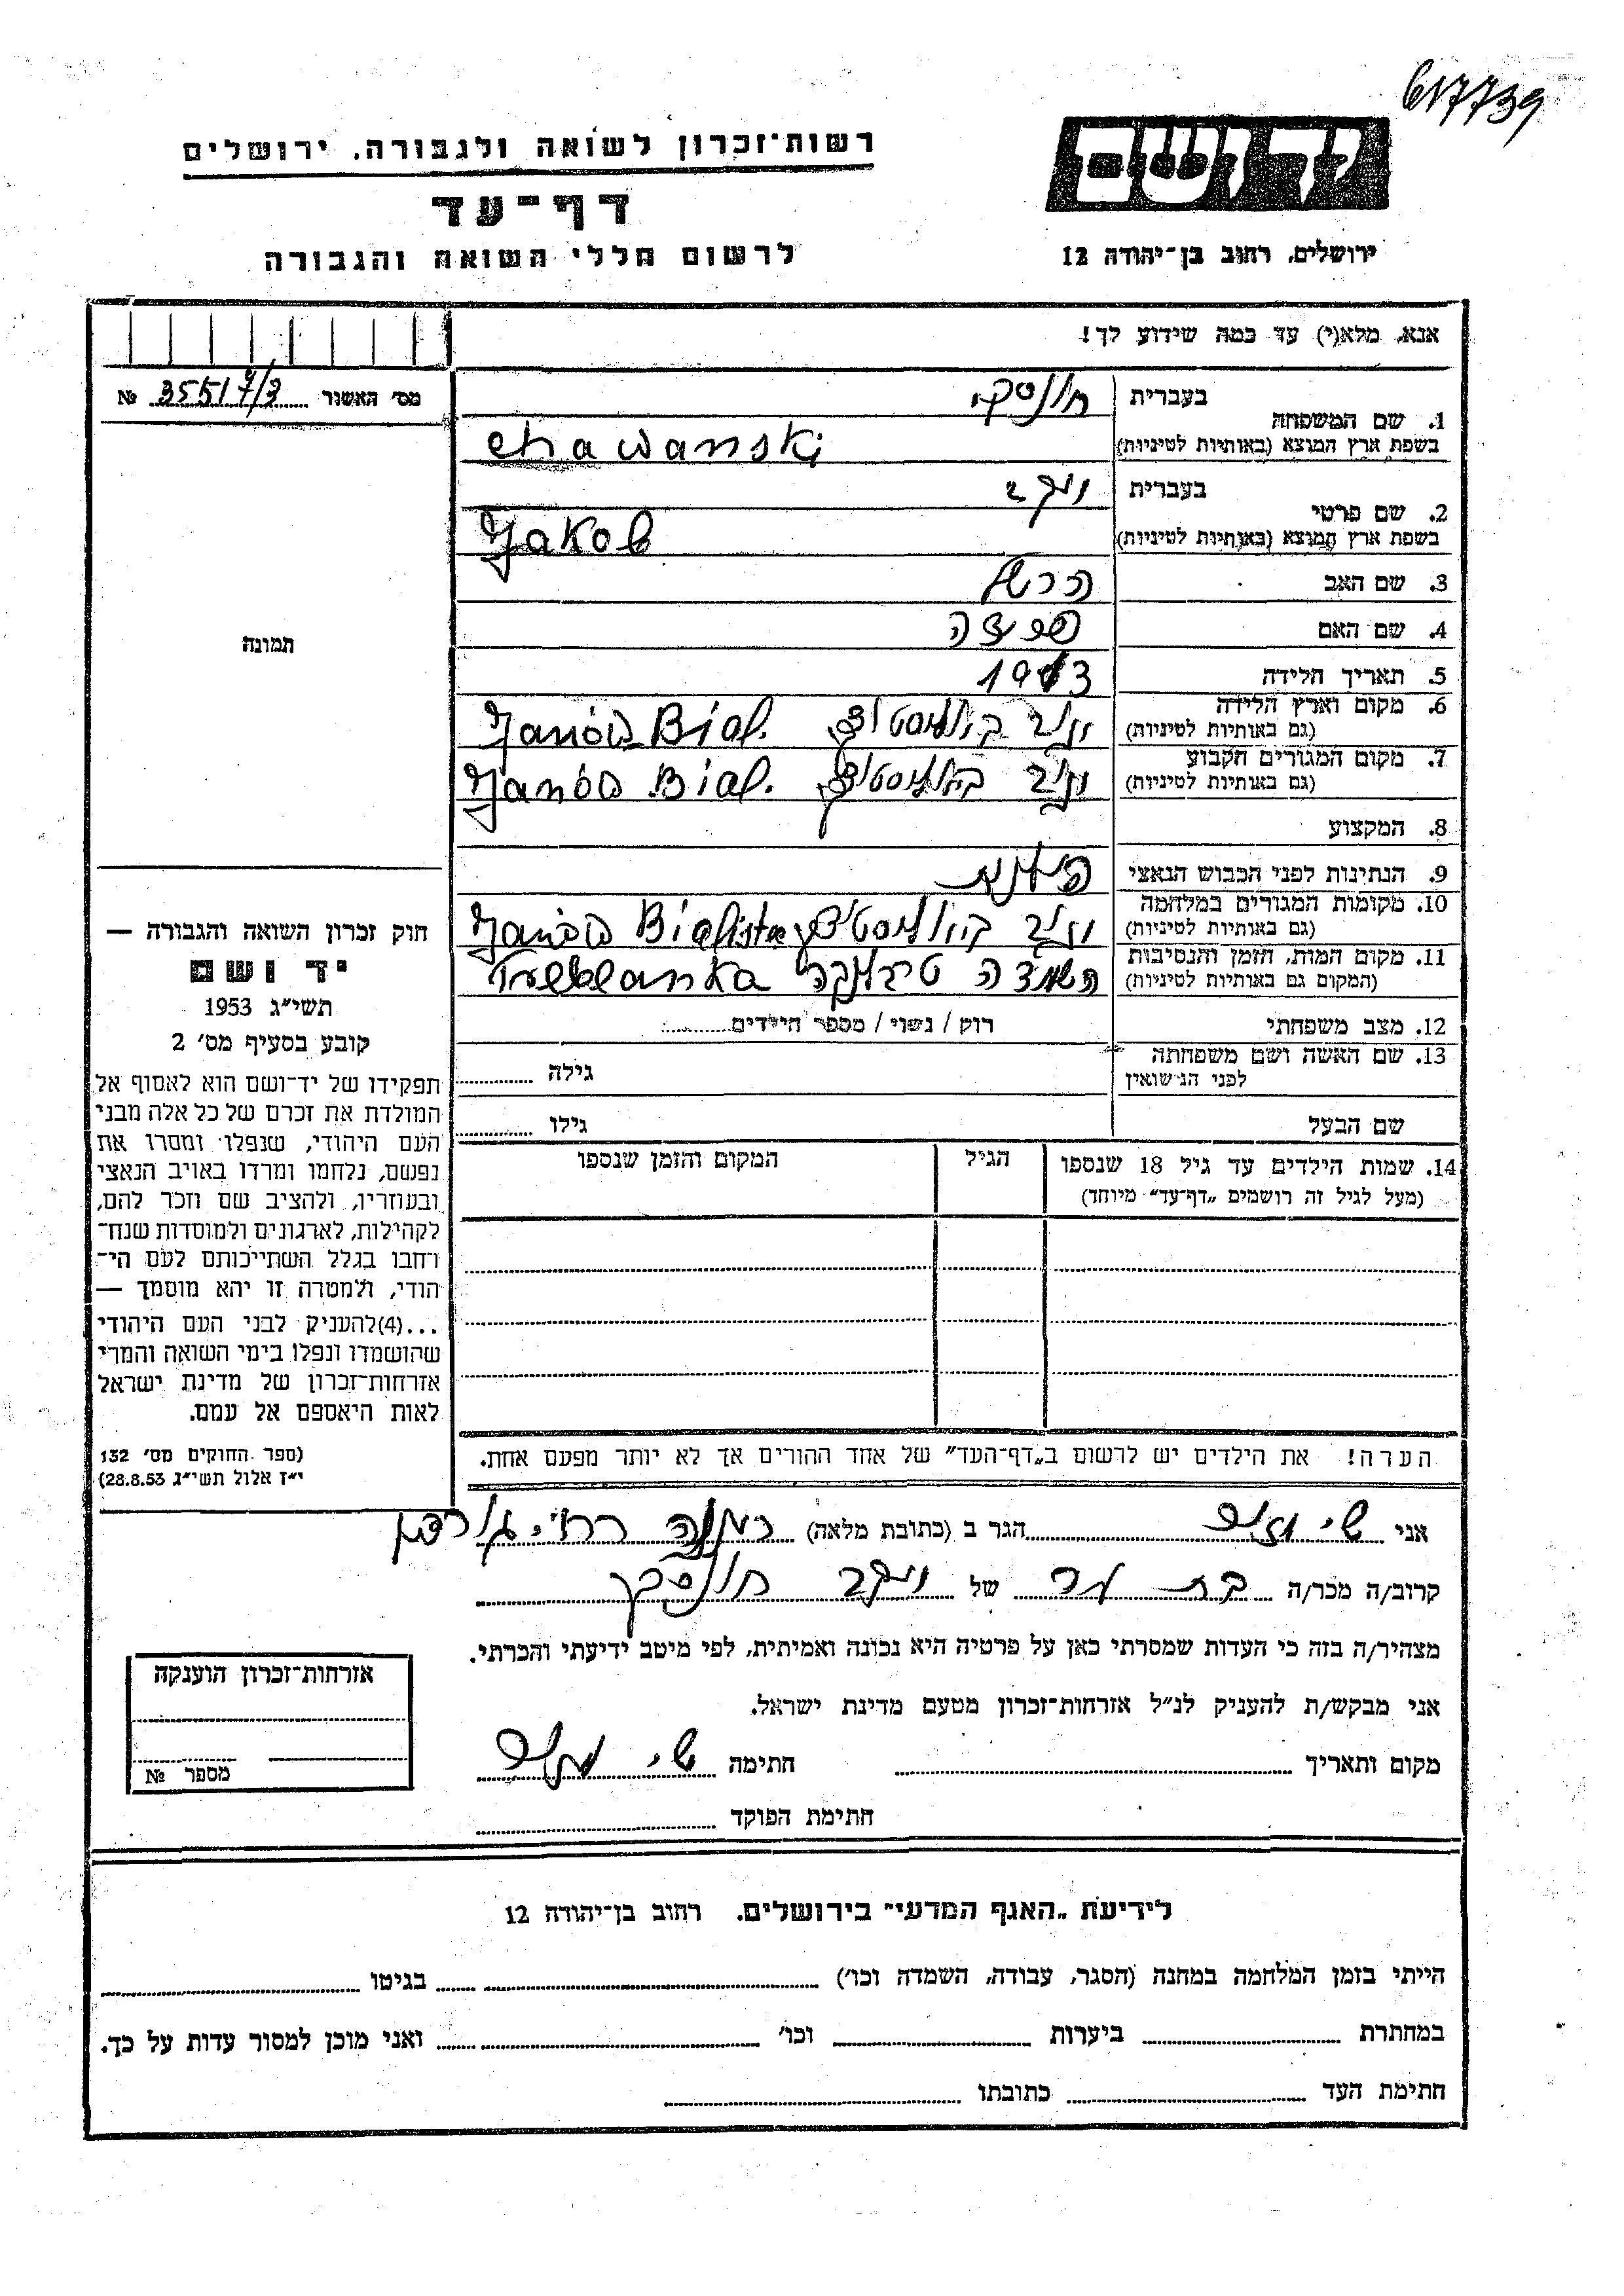 617739
יד ושם
ירושלים, רחוב בן־יהודה 12
רשות־זכרון לשואה ולגבורה, ירושלים
דף־עד
לרשום חללי השואה והגבורה
אנא, מלא(י) עד כמה שידוע לך!
מס׳ האשור 35517/3 №
תמונה
חוק זכרון השואה והגבורה —
יד ושם
תשי״ג 1953
קובע בסעיף מס׳ 2
תפקידו של יד־ושם הוא לאסוף אל
המולדת את זכרם של כל אלה מבני
העם היהודי, שנפלו ומסרו את
נפשם, נלחמו ומרדו באויב הנאצי
ובעוזריו, ולהציב שם וזכר להם,
לקהילות, לארגונים ולמוסדות שנח־
רבו בגלל השתייכותם לעם הי־
הודי, ולמטרה זו יהא מוסמך —
...(4)להעניק לבני העם היהודי
שהושמדו ונפלו בימי השואה והמרי
אזרחות־זכרון של מדינת ישראל
לאות היאספם אל עמם.
(ספר החוקים מס׳ 132
י״ז אלול תשי״ג 28.8.53)
1. שם המשפחה
בעברית חונסקי
בשפת ארץ המוצא (באותיות לטיניות) chawanski
2. שם פרטי
בעברית יעקב
בשפת ארץ המוצא (באותיות לטיניות) Jakob
3. שם האב הרשל
4. שם האם
5. תאריך הלידה 1913
6. מקום וארץ הלידה
(גם באותיות לטיניות) ינוב ביאליסטוק Janów Bial.
7. מקום המגורים הקבוע
(גם באותיות לטיניות) ינוב ביאליסטוק Janów Bial.
8. המקצוע
9. הנתינות לפני הכבוש הנאצי
10. מקומות המגורים במלחמה
(גם באותיות לטיניות) ינוב ביאליסטוק Janów
11. מקום המות, הזמן והנסיבות
(המקום גם באותיות לטיניות) השמדה טרבלנקה Treblanka
12. מצב משפחתי רוק / נשוי / מספר הילדים
13. שם האשה ושם משפחתה
לפני הנישואין גילה
שם הבעל גילו
14. שמות הילדים עד גיל 18 שנספו הגיל המקום והזמן שנספו
(מעל לגיל זה רושמים „דף־עד״ מיוחד)
הערה! את הילדים יש לרשום ב„דף־העד״ של אחד ההורים אך לא יותר מפעם אחת.
אני הגר ב (כתובת מלאה)
קרוב/ה מכר/ה של יעקב חונסקי
מצהיר/ה בזה כי העדות שמסרתי כאן על פרטיה היא נכונה ואמיתית, לפי מיטב ידיעתי והכרתי.
אני מבקש/ת להעניק לנ״ל אזרחות־זכרון מטעם מדינת ישראל.
מקום ותאריך חתימה
חתימת הפוקד
אזרחות־זכרון הוענקה
מספר №
לידיעת „האגף המדעי״ בירושלים. רחוב בן־יהודה 12
הייתי בזמן המלחמה במחנה (הסגר, עבודה, השמדה וכו׳) בגיטו
במחתרת ביערות וכו׳ ואני מוכן למסור עדות על כך.
חתימת העד כתובתו